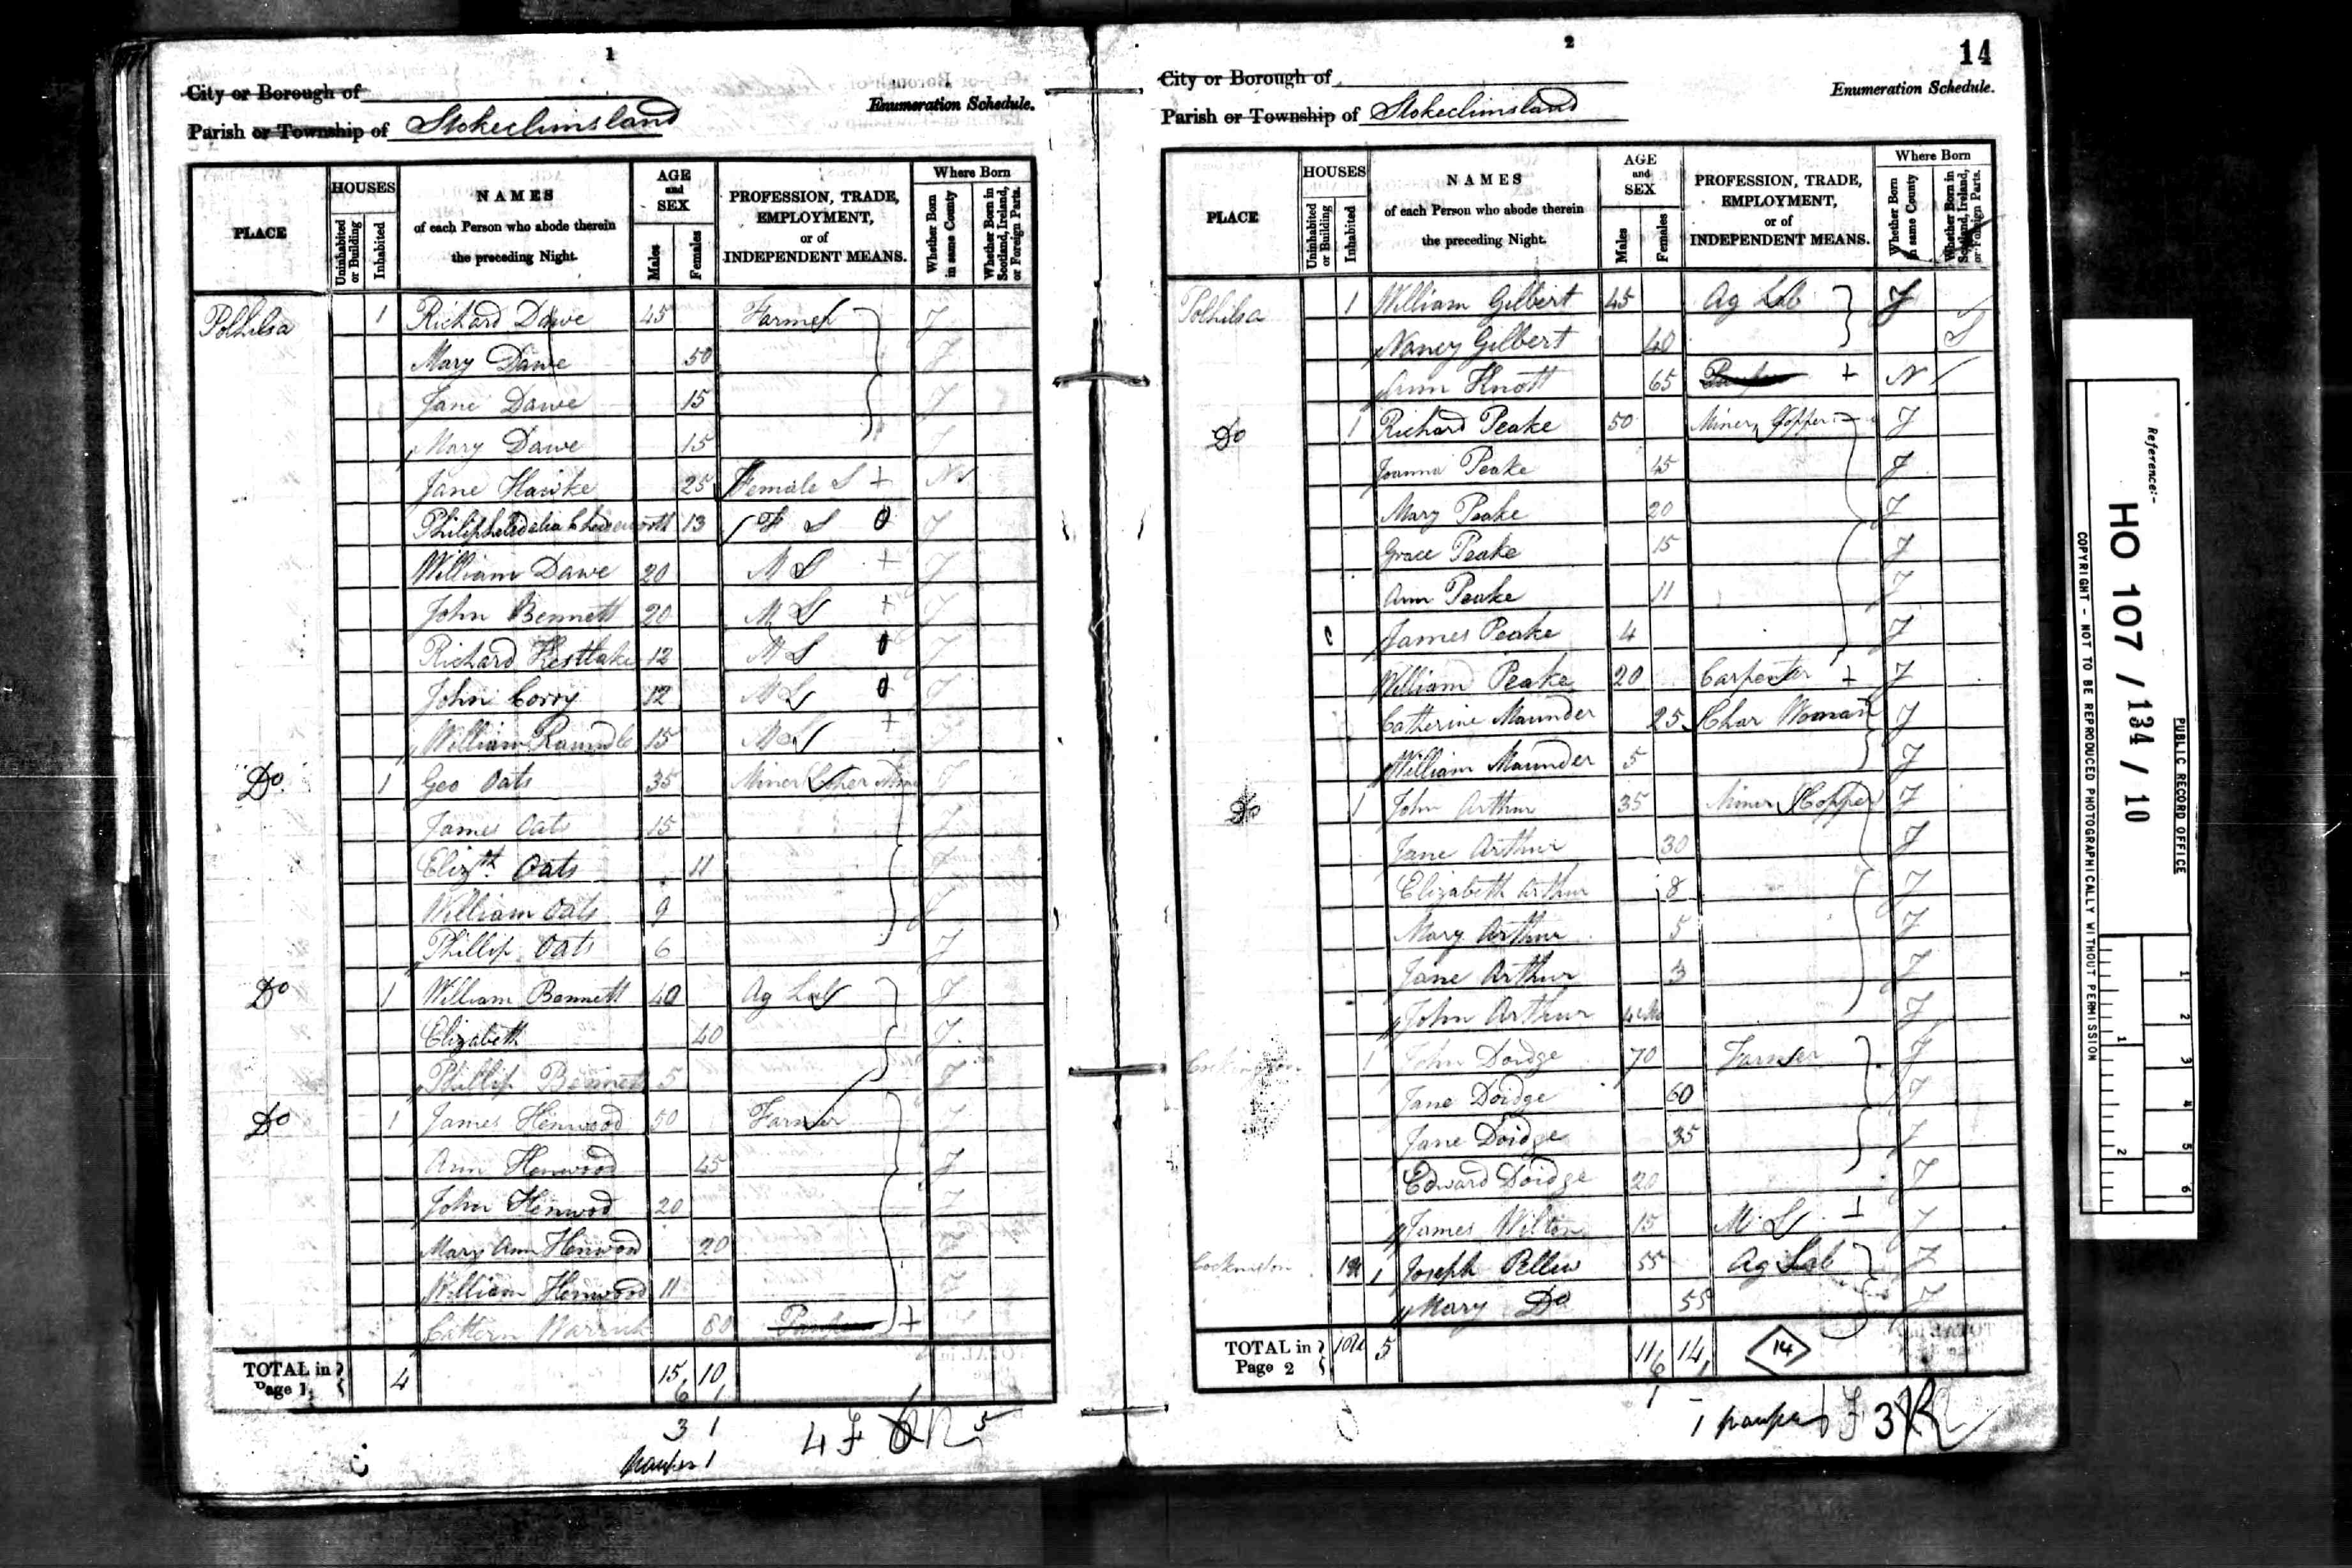 1
City or Borough of
Enumeration Schedule.
Parish or Township of Stokeclimsland
PLACE
HOUSES
Uninhabited or Building
Inhabited
NAMES
of each Person who abode therein
the preceding Night.
AGE
and
SEX
Males
Females
PROFESSION, TRADE,
EMPLOYMENT,
or of
INDEPENDENT MEANS.
Where Born
Whether Born in same County
Whether Born in Scotland, Ireland, or Foreign Parts.
Polhilsa 1 Richard Dawe 45 Farmer Y
Mary Dawe 50 Y
Jane Dawe 15 Y
Mary Dawe 15 Y
Jane Hawke 25 Female S + N
13 F S 0 Y
William Dawe 20 M S + Y
John Bennett 20 M S + Y
Richard Westlake 12 M S 0 Y
John Corry 12 M S 0 Y
William Raundle 15 M S + Y
Do. 1 Geo Oats 35 Miner Y
James Oats 15 Y
Elizth. Oats 11 Y
William Oats 9 Y
Phillip Oats 6 Y
Do 1 William Bennett 40 Ag Lab Y
Elizabeth 40 Y
Phillip Bennett 5 Y
Do 1 James Henwood 50 Farmer Y
Ann Henwood 45 Y
John Henwood 20 Y
Mary Ann Henwood 20 Y
William Henwood 11 Y
80 +
TOTAL in Page 1 4 15 10
6 1
3 1
4 F 5
1
2
14
City or Borough of
Enumeration Schedule.
Parish or Township of Stokeclimsland
PLACE
HOUSES
Uninhabited or Building
Inhabited
NAMES
of each Person who abode therein
the preceding Night.
AGE
and
SEX
Males
Females
PROFESSION, TRADE,
EMPLOYMENT,
or of
INDEPENDENT MEANS.
Where Born
Whether Born in same County
Whether Born in Scotland, Ireland, or Foreign Parts.
Polhilsa 1 William Gilbert 45 Ag Lab Y
Nancy Gilbert 40
Ann Knott 65 + N
Do 1 Richard Peake 50 Miner Copper Y
Joanna Peake 45 Y
Mary Peake 20 Y
Grace Peake 15 Y
Ann Peake 11 Y
James Peake 4 Y
William Peake 20 Carpenter + Y
Catherine Maunder 25 Char Woman Y
William Maunder 5 Y
Do 1 John Arthur 35 Miner Copper Y
Jane Arthur 30 Y
Elizabeth Arthur 8 Y
Mary Arthur 5 Y
Jane Arthur 3 Y
John Arthur Y
1 John Doidge 70 Farmer Y
Jane Doidge 60 Y
Jane Doidge 35 Y
Edward Doidge 20 Y
James Wilton 15 M S + Y
1 Joseph Pellew 55 Ag Lab Y
Mary Do 55 Y
TOTAL in Page 2 5 11 14 14
6 1
1
1 pauper F 3
Reference:-
HO 107 / 134 / 10
PUBLIC RECORD OFFICE
COPYRIGHT - NOT TO BE REPRODUCED PHOTOGRAPHICALLY WITHOUT PERMISSION
1
2
1
2
3
4
5
6